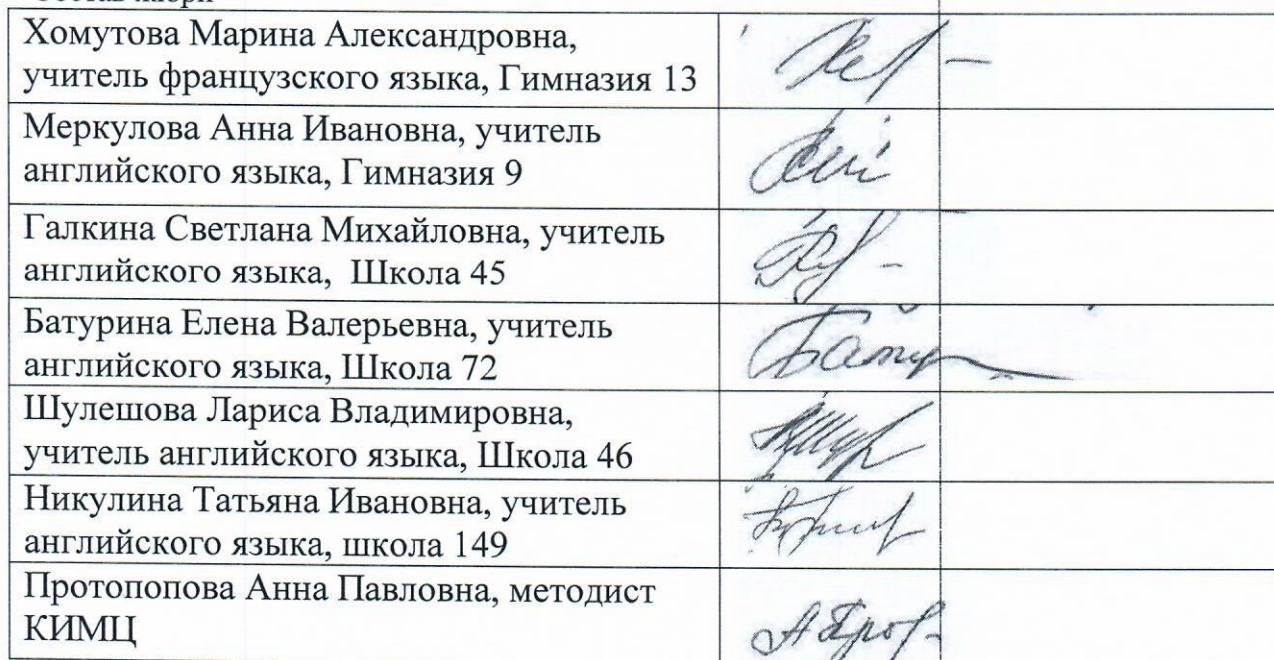 Хомутова Марина Александровна,
учитель французского языка, Гимназия 13
Меркулова Анна Ивановна, учитель
английского языка, Гимназия 9
Галкина Светлана Михайловна, учитель
английского языка, Школа 45
Батурина Елена Валерьевна, учитель
английского языка, Школа 72
Шулешова Лариса Владимировна,
учитель английского языка, Школа 46
Никулина Татьяна Ивановна, учитель
английского языка, школа 149
Протопопова Анна Павловна, методист
КИМЦ